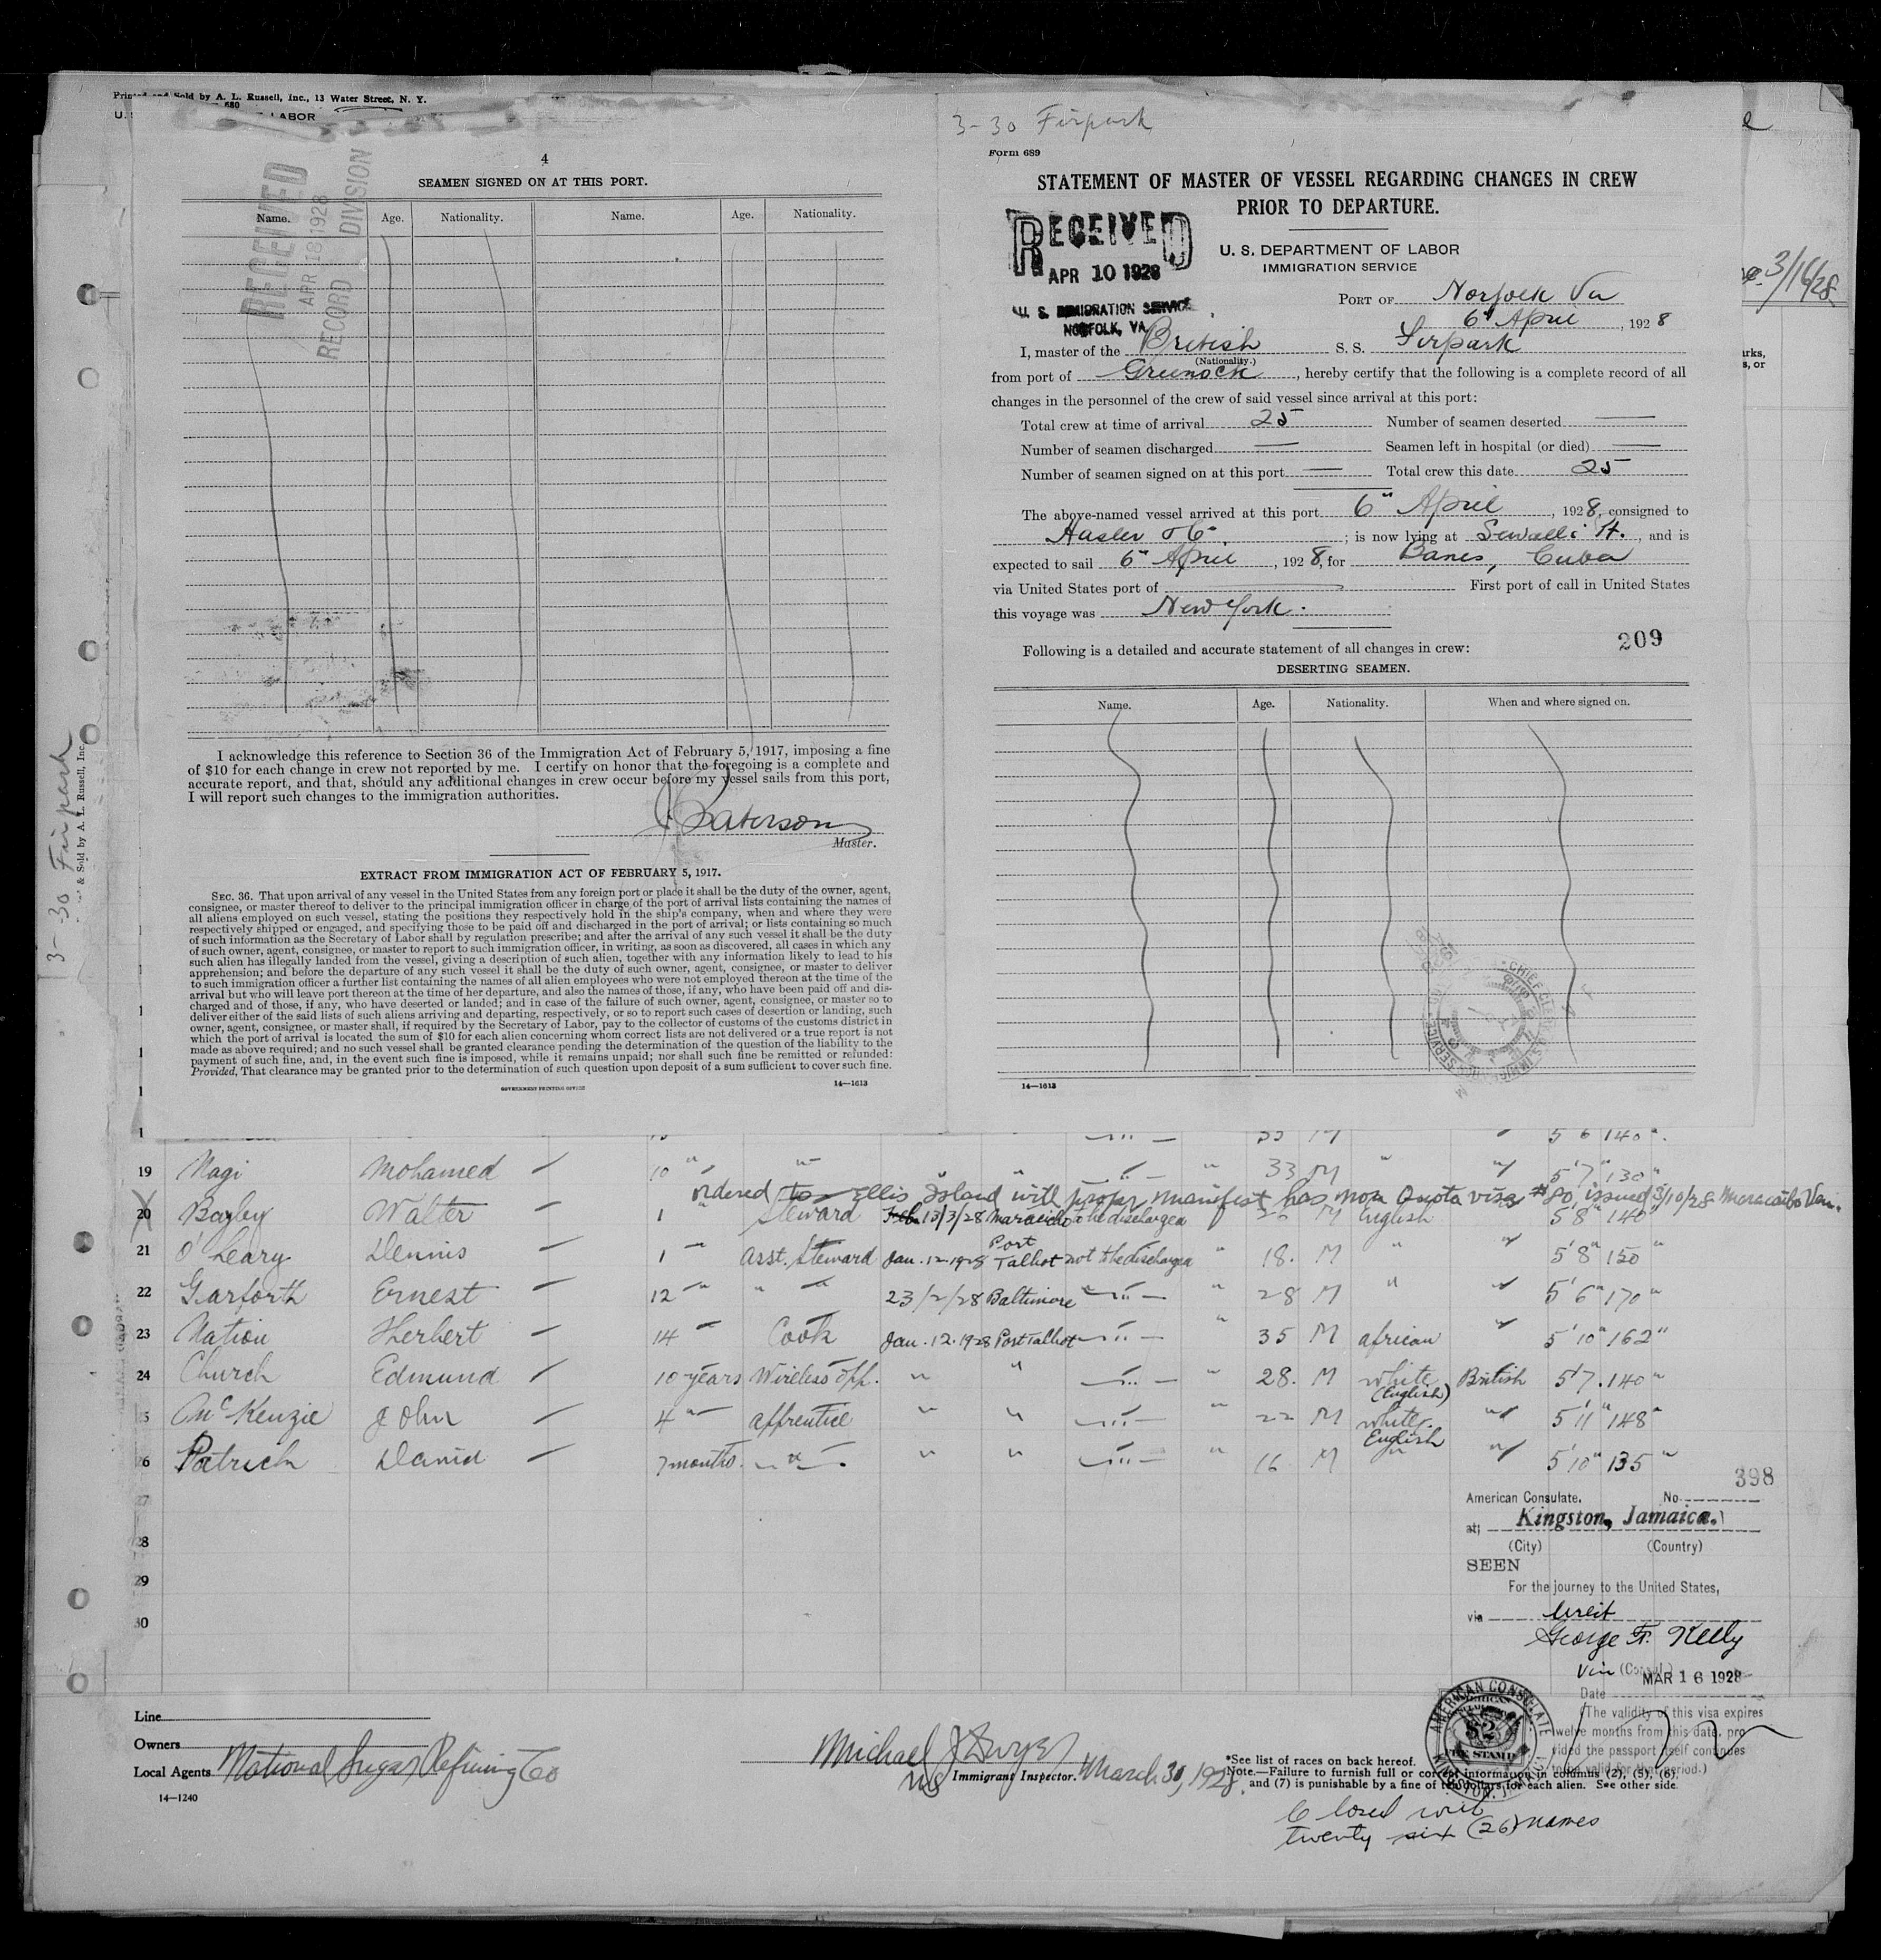 Printed and Sold by A. L. Russell, Inc., 13 Water Street, N. Y.
680
LABOR
4
SEAMEN SIGNED ON AT THIS PORT.
Name. Age. Nationality. Name. Age. Nationality.
RECEIVED
APR 18 1928
RECORD DIVISION
I acknowledge this reference to Section 36 of the Immigration Act of February 5, 1917, imposing a fine
of $10 for each change in crew not reported by me. I certify on honor that the foregoing is a complete and
accurate report, and that, should any additional changes in crew occur before my vessel sails from this port,
I will report such changes to the immigration authorities.
J. Paterson
Master.
EXTRACT FROM IMMIGRATION ACT OF FEBRUARY 5, 1917.
SEC. 36. That upon arrival of any vessel in the United States from any foreign port or place it shall be the duty of the owner, agent,
consignee, or master thereof to deliver to the principal immigration officer in charge of the port of arrival lists containing the names of
all aliens employed on such vessel, stating the positions they respectively hold in the ship's company, when and where they were
respectively shipped or engaged, and specifying those to be paid off and discharged in the port of arrival; or lists containing so much
of such information as the Secretary of Labor shall by regulation prescribe; and after the arrival of any such vessel it shall be the duty
of such owner, agent, consignee, or master to report to such immigration officer, in writing, as soon as discovered, all cases in which any
such alien has illegally landed from the vessel, giving a description of such alien, together with any information likely to lead to his
apprehension; and before the departure of any such vessel it shall be the duty of such owner, agent, consignee, or master to deliver
to such immigration officer a further list containing the names of all alien employees who were not employed thereon at the time of the
arrival but who will leave port thereon at the time of her departure, and also the names of those, if any, who have been paid off and dis-
charged and of those, if any, who have deserted or landed; and in case of the failure of such owner, agent, consignee, or master so to
deliver either of the said lists of such aliens arriving and departing, respectively, or so to report such cases of desertion or landing, such
owner, agent, consignee, or master shall, if required by the Secretary of Labor, pay to the collector of customs of the customs district in
which the port of arrival is located the sum of $10 for each alien concerning whom correct lists are not delivered or a true report is not
made as above required; and no such vessel shall be granted clearance pending the determination of the question of the liability to the
payment of such fine, and, in the event such fine is imposed, while it remains unpaid; nor shall such fine be remitted or refunded:
Provided, That clearance may be granted prior to the determination of such question upon deposit of a sum sufficient to cover such fine.
GOVERNMENT PRINTING OFFICE 14—1613
3-30 Firpark
Form 689
STATEMENT OF MASTER OF VESSEL REGARDING CHANGES IN CREW
PRIOR TO DEPARTURE.
RECEIVED
APR 10 1928
U. S. IMMIGRATION SERVICE
NORFOLK, VA
U. S. DEPARTMENT OF LABOR
IMMIGRATION SERVICE
PORT OF Norfolk Va
6" April, 1928
I, master of the British S. S. Firpark
(Nationality.)
from port of Greenock, hereby certify that the following is a complete record of all
changes in the personnel of the crew of said vessel since arrival at this port:
Total crew at time of arrival 25 Number of seamen deserted —
Number of seamen discharged — Seamen left in hospital (or died) —
Number of seamen signed on at this port — Total crew this date 25
The above-named vessel arrived at this port 6" April, 1928, consigned to
Hasler & Co.; is now lying at Sewalls Pt., and is
expected to sail 6" April, 1928, for Banes, Cuba
via United States port of — First port of call in United States
this voyage was New York.
209
Following is a detailed and accurate statement of all changes in crew:
DESERTING SEAMEN.
Name. Age. Nationality. When and where signed on.
14—1613
3/16/28
3-30 Firpark
& Sold by A. L. Russell, Inc.
5 6 140 "
19 Nagi Mohamed 10 " " " " " 33 M " " 5'7" 130 "
ordered to Ellis Island with proper manifest has non Quota visa #80, issued 3/10/28 Maracaibo Ven.
20 Bayley Walter 1 " Steward Feb 13/3/28 Maracaibo To be discharged M English 5'8" 140
21 O'Leary Dennis 1 " Asst. Steward Jan. 12. 1928 Port Talbot not to be discharged " 18. M " " 5'8" 150 "
22 Garforth Ernest 12 " " " 23/2/28 Baltimore " " 28 M " " 5'6" 170 "
23 Nation Herbert 14 " Cook Jan. 12. 1928 Port Talbot " " 35 M african " 5'10" 162 "
24 Church Edmund 10 years Wireless opp. " " " " 28. M white (English) British 5'7. 140 "
25 McKenzie John 4 " apprentice " " " " 22 M white. English " 5'11" 148 "
26 Patrick David 7 months. " " " " 16 M " " 5'10" 135 "
27
28
29
30
398
American Consulate. No.
at Kingston, Jamaica.
(City) (Country)
SEEN
For the journey to the United States,
via direct
George F. Kelly
Vice (Consul.)
MAR 16 1928
Date
(The validity of this visa expires
twelve months from this date, pro
vided the passport itself continues
to be valid for that period.)
AMERICAN CONSULATE
KINGSTON, JAMAICA
$2
FEE STAMP
Line
Owners
Local Agents National Sugar Refining Co
14—1240
Michael J Dwyer
Immigrant Inspector. March 30, 1928.
*See list of races on back hereof.
Note.—Failure to furnish full or correct information in columns (2), (5), (6),
and (7) is punishable by a fine of ten dollars for each alien. See other side.
Closed with
twenty six (26) names